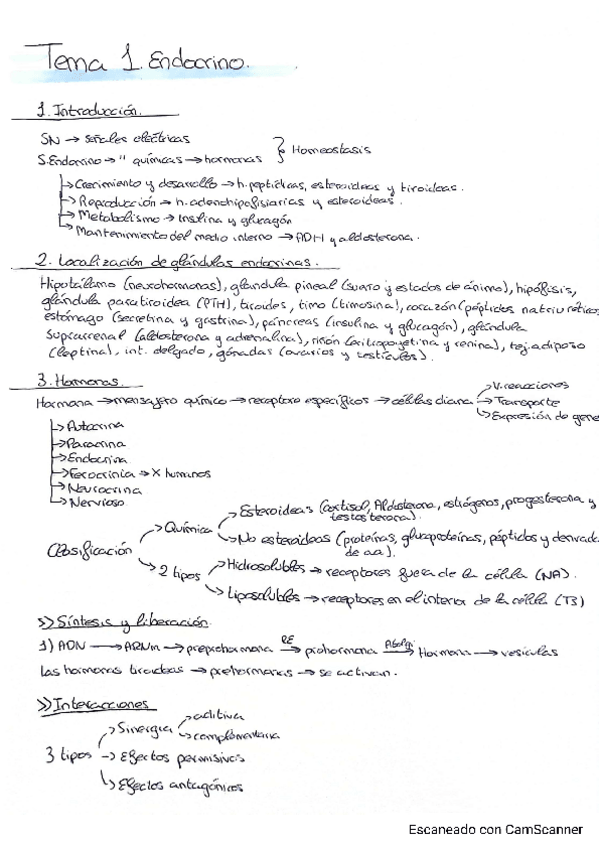 Tema 1. Endocrino.
1. Introducción.
SN → señales eléctricas
S. Endocrino → " químicas → hormonas } Homeostasis
→ Crecimiento y desarrollo → h. peptídicas, esteroideas y tiroideas.
→ Reproducción → h. adenohipofisiarias y esteroideas.
→ Metabolismo → Insulina y glucagón
→ Mantenimiento del medio interno → ADH y aldosterona.
2. Localización de glándulas endocrinas.
Hipotálamo (neurohormonas), glandula pineal (sueño y estados de ánimo), hipófisis,
glándula paratiroidea (PTH), tiroides, timo (timosina), corazón (péptidos natriuréticos
estómago (secretina y gastrina), páncreas (insulina y glucagón), glándula
suprarrenal (aldosterona y adrenalina), riñón (eritropoyetina y renina), tej. adiposo
(leptina), int. delgado, gónadas (ovarios y testículos).
3. Hormonas.
Hormona → mensajero químico → receptores específicos → células diana → V. reacciones
→ Transporte
→ Expresión de gene
→ Autocrina
→ Paracrina
→ Endocrina
→ Ferocrinia → X humanos
→ Neurocrina
→ Nervioso
Clasificación → Química → Esteroideas (cortisol, Aldosterona, estrógenos, progesterona y
testosterona).
→ No esteroideas (proteínas, glucoproteínas, péptidos y derivad
de aa).
→ 2 tipos → Hidrosolubles → receptores fuera de la célula (NA).
→ Liposolubles → receptores en el interior de la célula (T3)
>> Síntesis y liberación.
1) ADN → ARNm → preprohormona RE → prohormona A. Golgi → Hormona → vesiculas
Las hormonas tiroideas → prehormonas → se activan.
>> Interacciones
3 tipos → Sinergia → aditiva
→ complementaria
→ Efectos permisivos
→ Efectos antagónicos
Escaneado con CamScanner